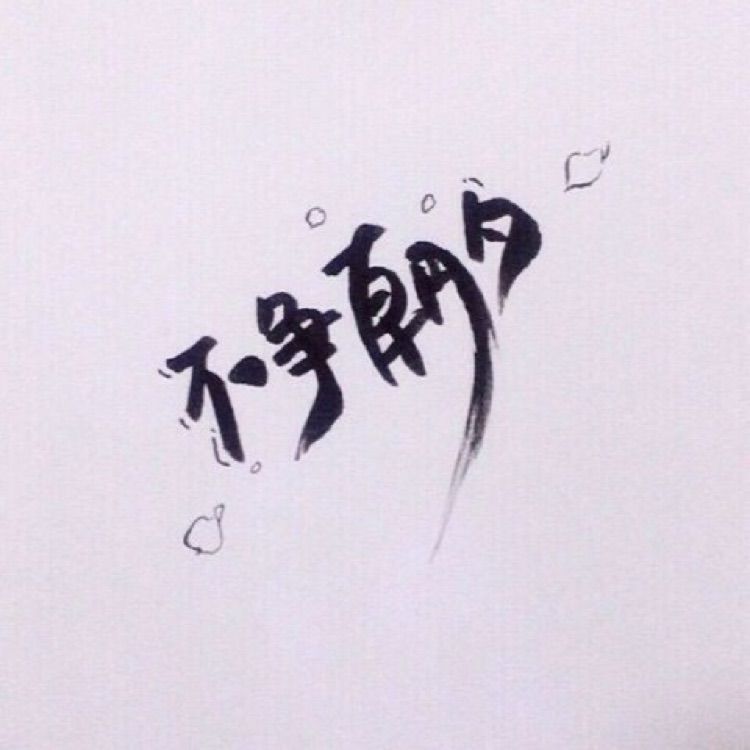 不争朝夕